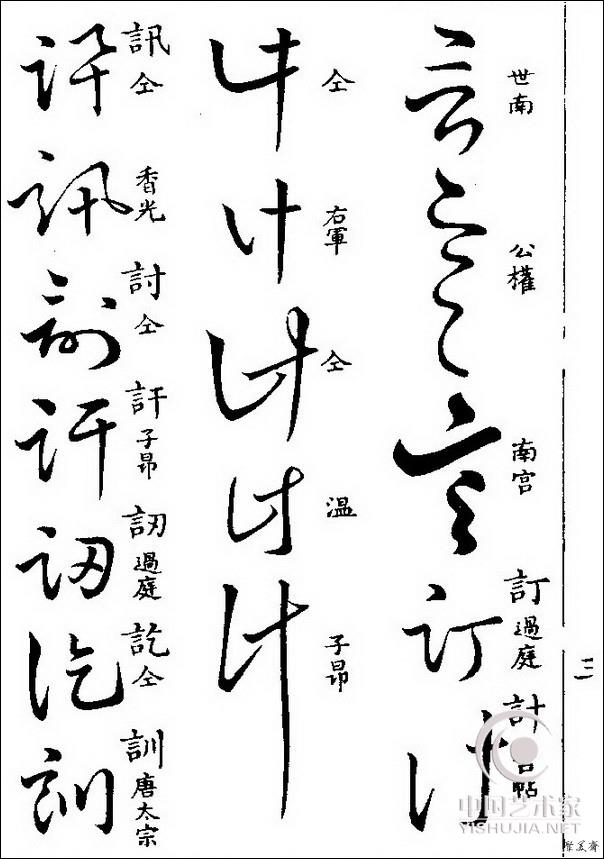 世南
公權
南宮
訂 過庭
計 古帖
仝
右軍
仝
溫
子昂
訊 仝
香光
討 仝
訐 子昂
訒 過庭
訖 仝
訓 唐太宗
三
中国艺术家
YISHUJIA.NET